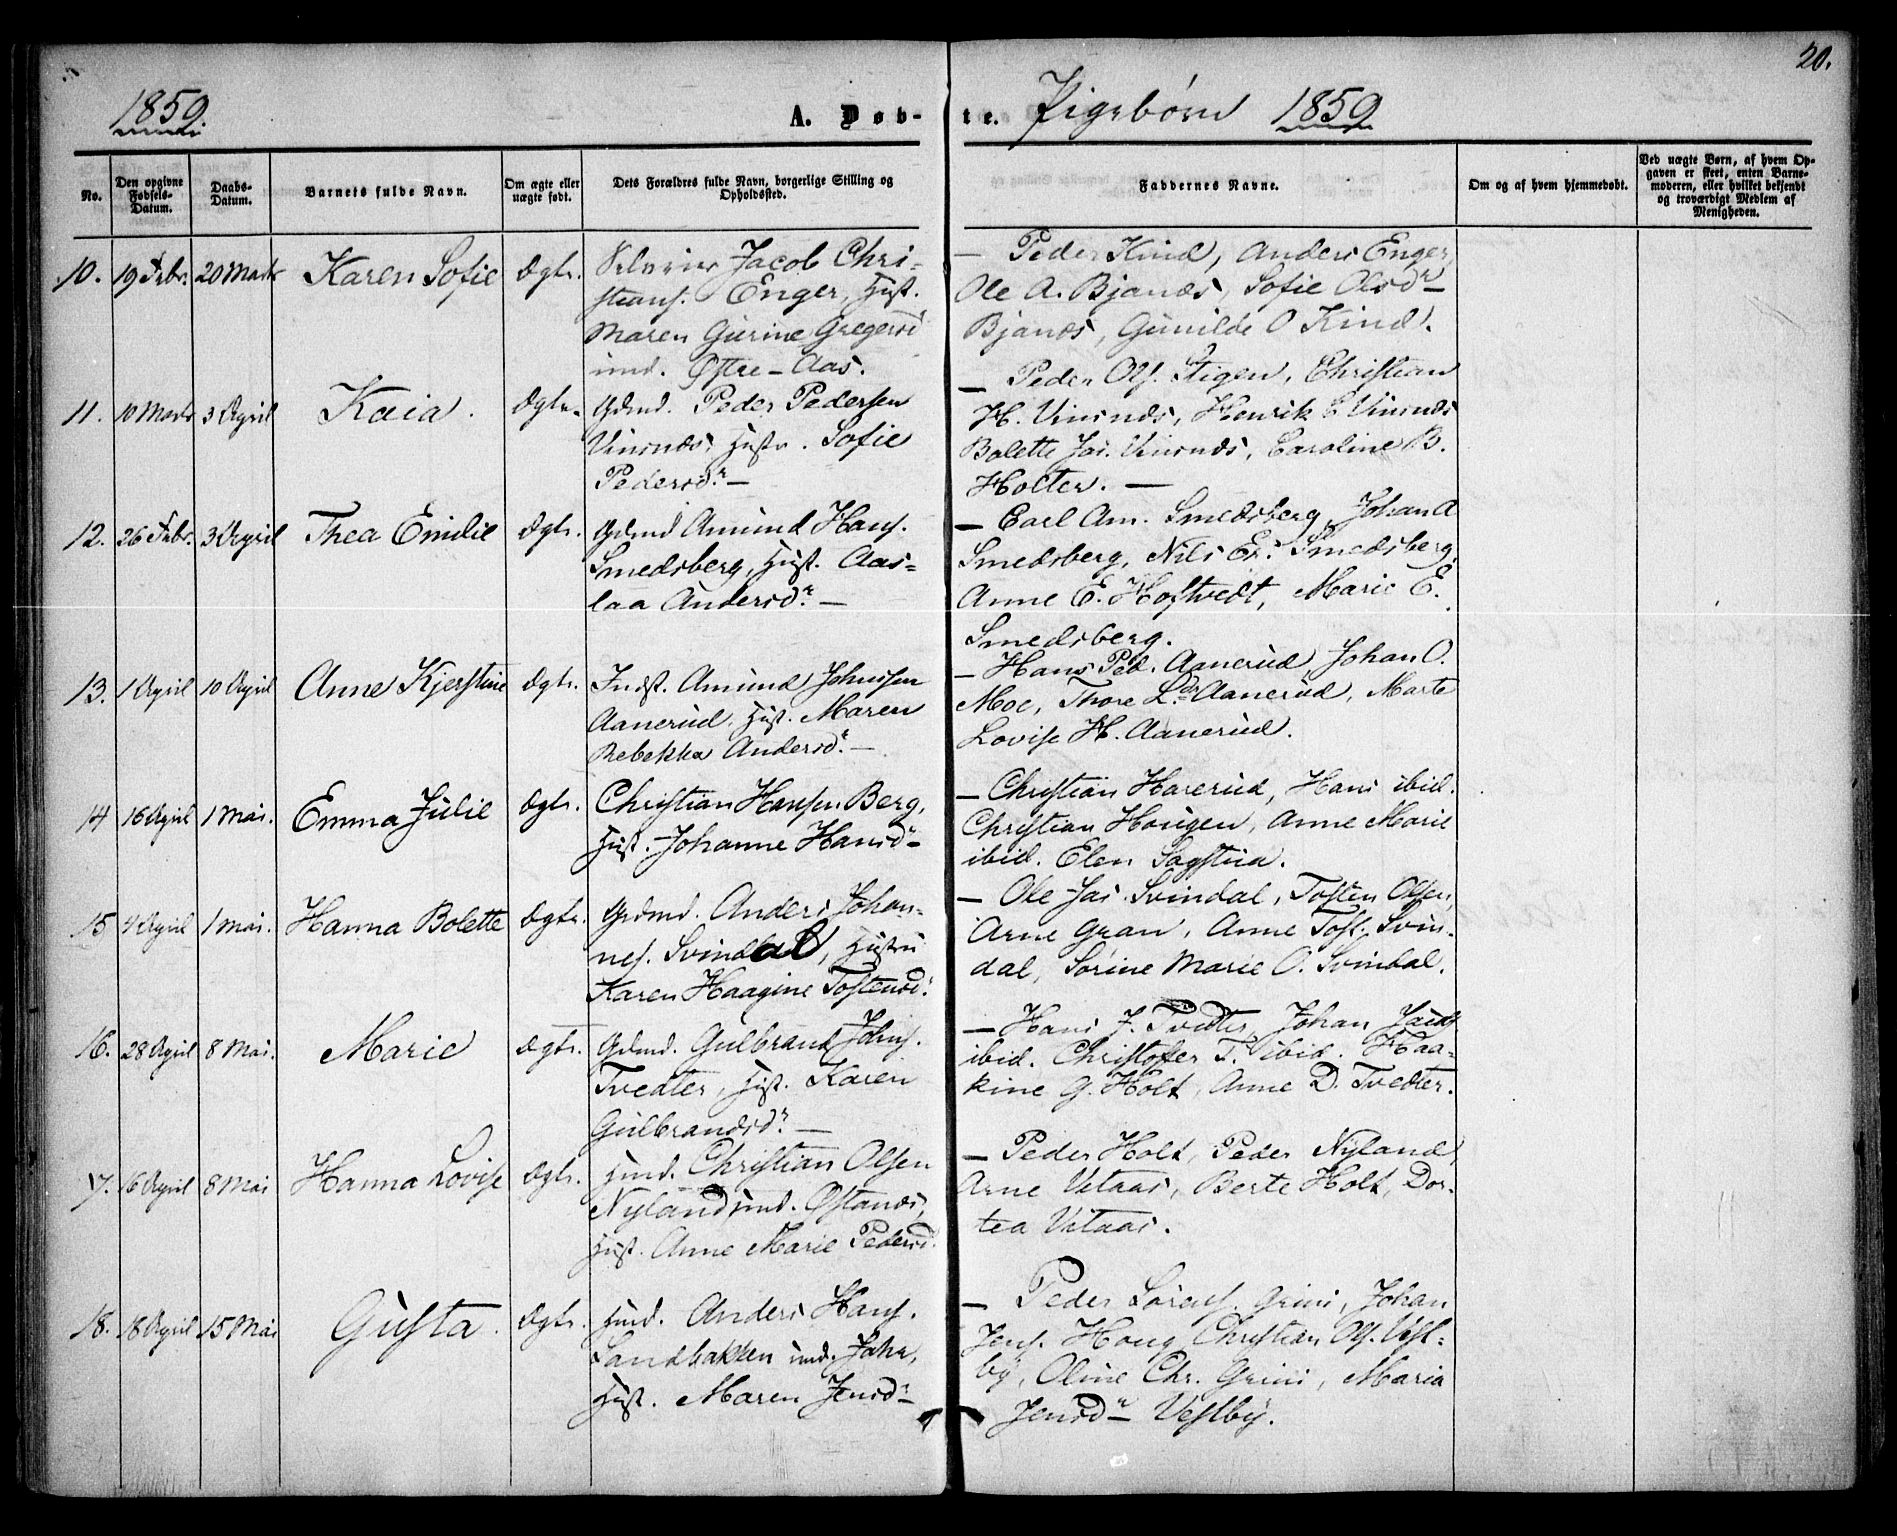 20.
1859. A. Døb- te. Pigebørn 1859
No.
Den opgivne Fødsels-Datum.
Daabs-Datum.
Barnets fulde Navn.
Om ægte eller uægte født.
Dets Forældres fulde Navn, borgerlige Stilling og Opholdssted.
Faddernes Navne.
Om og af hvem hjemmedøbt.
Ved uægte Børn, af hvem Opgaven er skeet, enten Barnemoderen, eller hvilket bekjendt og troværdigt Medlem af Menigheden.
10. 19 Febr. 20 Marts Karen Sofie Ægte. Jacob Chri-
stians. Enger, Hust.
Maren Gurine Gregersd
und. Østre-Aas.
— Peder Kind, Anders Enger,
Ole A. Bjanes, Sofie Olsdr
Bjanes, Gunilde O Kind.
11. 10 Marts 3 April Kaia. Ægte. Gdmd. Peder Pedersen
Vinsnes, Hustr. Sofie
Pedersdr. —
— Peder Ols. Stigen, Christian
H. Vinsnes, Henrik C Vinsnes
Bolette Jas. Vinsnes, Caroline B.
Holter. —
12. 26 Febr. 3 April Thea Emilie Ægte. Gdmd Amund Hans.
Smedsberg, Hust. Aas-
laa Andersdr. —
— Carl Am. Smedsberg, Johan A
Smedsberg, Nils Er. Smedsberg,
Anne E. Hoftvedt, Marie E.
Smedsberg.
13. 1 April 10 April Anne Kjerstine Ægte. Indst. Amund Johnsen
Aanerud. Hust. Maren
Rebekka Andersdr. —
— Hans Ped. Aanerud, Johan O.
Moe, Thore Aanerud, Marte
Lovise H. Aanerud.
14 16 April 1 Mai. Emma Julie Ægte. Christian Hansen Berg,
Hust. Johanne Hansdr
— Christian Harerud, Hans ibid.
Christian Hougen, Anne Marie
ibid. Elen Sagstua.
15 4 April 1 Mai. Hanna Bolette Ægte. Gdmd. Anders Johan-
nes. Svindal, Hustru
Karen Haagine Tostensd.
— Ole Jas. Svindal, Tosten Olsen,
Arne Gran, Anne Tost. Svin-
dal, Sørine Marie O. Svindal.
16. 28 April 8 Mai. Marie Ægte. Gdmd. Gulbrand Johns.
Tvedter, Hust. Karen
Gulbrandsdr. —
— Hans J. Tvedter, Johan
ibid. Christoffer T. ibid. Haa-
kine G. Holt, Anne D. Tvedter.
17. 16 April 8 Mai Hanna Lovise Ægte. Hmd. Christian Olsen
Nyland und. Østanes,
Hust. Anne Marie Pedersd.
— Peder Holt, Peder Nyland,
Arne Vataas, Berte Holt, Dor-
tea Vataas.
18. 18 April 15 Mai Gusta. Ægte. Hmd. Anders Hans.
Sandbakken und. Jahr,
Hust. Maren Jensdr
— Peder Sørens. Grini, Johan
Jens. Houg, Christian Ols. Vest-
by, Oline Chr. Grini, Maria
Jensdr Vestby.